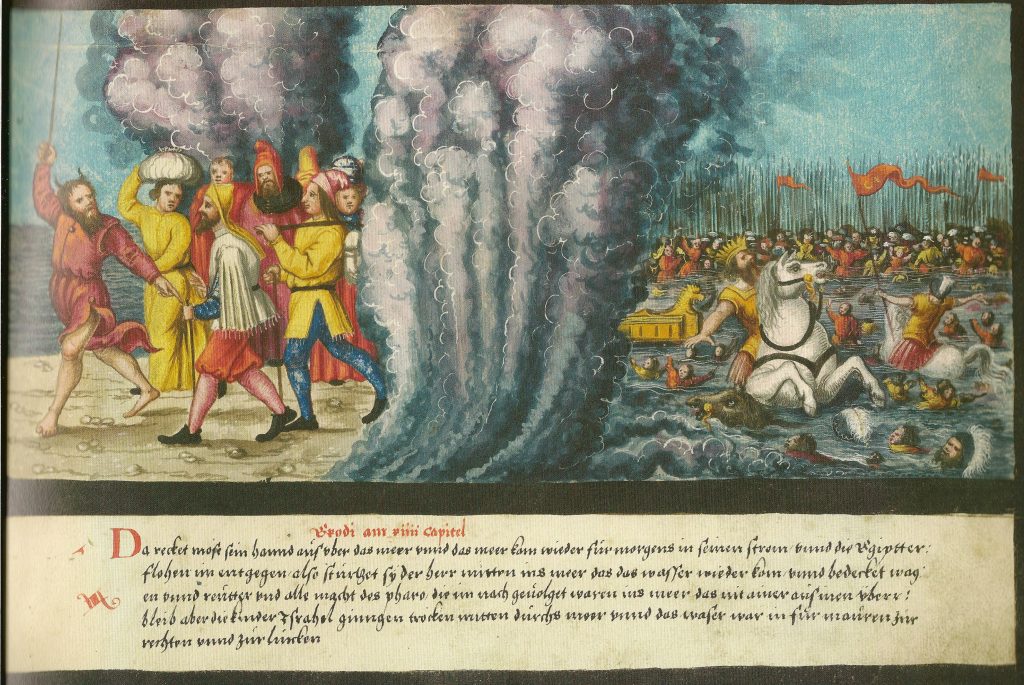 Exodi am xiiii Capitel
Da recket mose sein hannd aus vber das meer vnnd das meer kam wieder für morgens in seinen strom vnnd die Egiptter
flohen im entgegen also stürtzet sy der herr mitten ins meer das das wasser wieder kam vnnd bedecket wag
en vnnd reütter vnd alle macht des pharo die im nach geuolget waren ins meer das nit ainer aus inen vberr
bleib aber die kinder Israhel giungen trocken mitten durchs meer vnnd das waser was in für mauren zür
rechten vnnd zür lincken